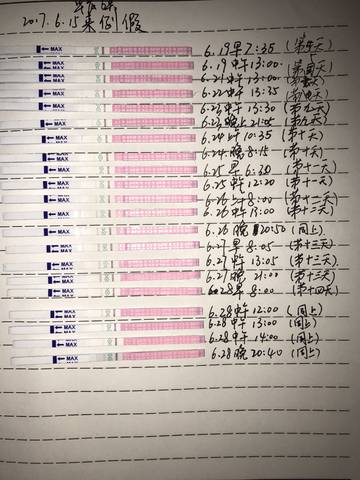 2017.6.15来例假
MAX 6.19早7:35 (第五天)
MAX 6.19中午13:00 (第五天)
MAX 6.21中午13:00
MAX 6.22中午13:35
MAX 6.23中午13:30 (第九天)
MAX 6.23晚上21:05 (第九天)
MAX 6.24上午10:35 (第十天)
MAX 6.24晚8:15 (第十天)
MAX 6.25早6:30 (第十一天)
MAX 6.25午12:20 (第十一天)
MAX 6.26上午8:00 (第十二天)
MAX 6.26中午13:00 (第十二天)
MAX 6.26晚20:50 (同上)
MAX 6.27早8:05 (第十三天)
MAX 6.27午13:05 (第十三天)
MAX 6.27晚21:00 (第十三天)
MAX 6.28早8:00 (第十四天)
MAX 6.28中午12:00 (同上)
MAX 6.28中午13:00 (同上)
MAX 6.28中午14:00 (同上)
MAX 6.28晚20:40 (同上)